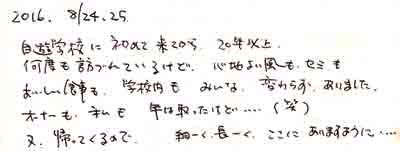 2016. 8/24.25
自遊学校に初めて来てから、20年以上。
何度も訪づれているけど、心地よい風も、セミも
おいしい食事も、学校内も みんな、変わらず、ありました。
オーナーも、私も 年は取ったけど……(笑)
又、帰ってくるので、 細ーく、長ーく、ここに ありますように……